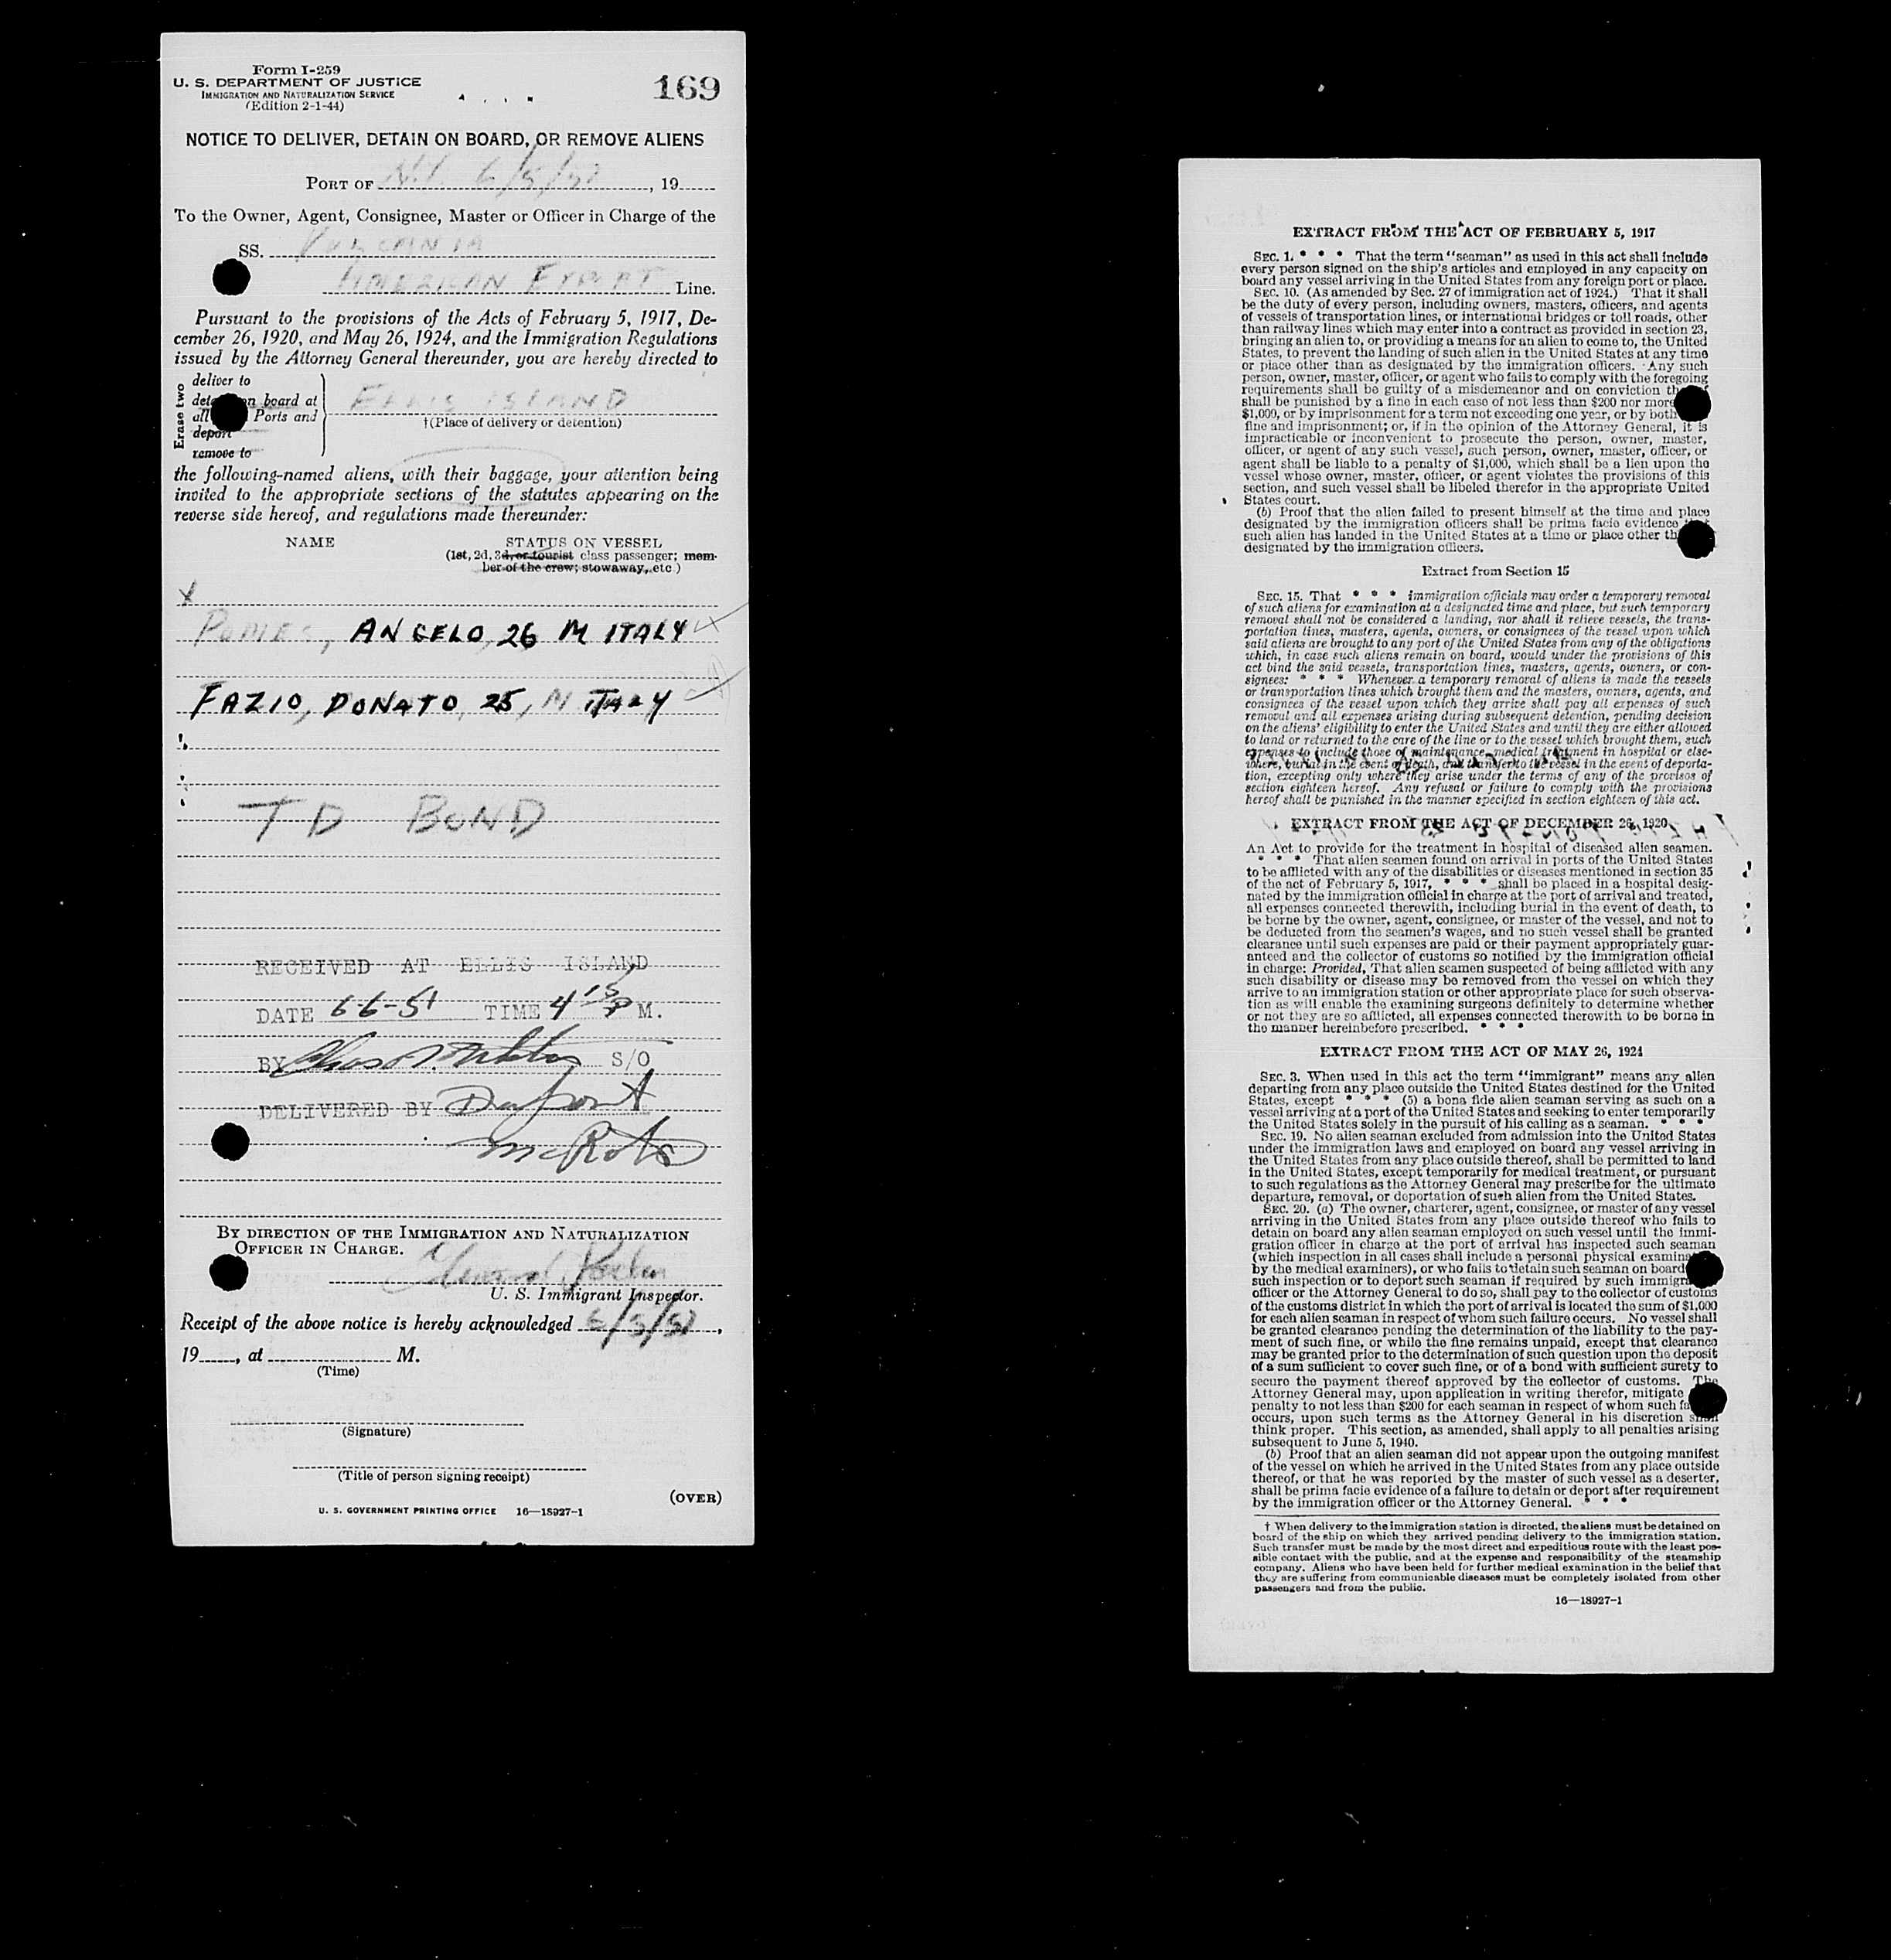 Form I-259
U. S. DEPARTMENT OF JUSTICE
IMMIGRATION AND NATURALIZATION SERVICE
(Edition 2-1-44)
169
NOTICE TO DELIVER, DETAIN ON BOARD, OR REMOVE ALIENS
PORT OF N.Y. 6/5/51, 19
To the Owner, Agent, Consignee, Master or Officer in Charge of the
SS.
AMERICAN EXPORT Line.
Pursuant to the provisions of the Acts of February 5, 1917, De-
cember 26, 1920, and May 26, 1924, and the Immigration Regulations
issued by the Attorney General thereunder, you are hereby directed to
Erase two
deliver to
on board at
all Ports and
deport
remove to
ELLIS ISLAND
†(Place of delivery or detention)
the following-named aliens, with their baggage, your attention being
invited to the appropriate sections of the statutes appearing on the
reverse side hereof, and regulations made thereunder:
NAME STATUS ON VESSEL
(1st, 2d, 3d, or tourist class passenger; mem-
ber of the crew; stowaway, etc.)
X
ANGELO, 26 M ITALY
FAZIO, DONATO, 25, M ITALY
TD BOND
RECEIVED AT ELLIS ISLAND
DATE 6-6-51 TIME 4 15 P M.
BY S/O
DELIVERED BY
BY DIRECTION OF THE IMMIGRATION AND NATURALIZATION
OFFICER IN CHARGE.
U. S. Immigrant Inspector.
Receipt of the above notice is hereby acknowledged 6/5/51,
19, at M.
(Time)
(Signature)
(Title of person signing receipt)
(OVER)
U. S. GOVERNMENT PRINTING OFFICE 16—18927-1
EXTRACT FROM THE ACT OF FEBRUARY 5, 1917
SEC. 1. * * * That the term "seaman" as used in this act shall include
every person signed on the ship's articles and employed in any capacity on
board any vessel arriving in the United States from any foreign port or place.
SEC. 10. (As amended by Sec. 27 of immigration act of 1924.) That it shall
be the duty of every person, including owners, masters, officers, and agents
of vessels of transportation lines, or international bridges or toll roads, other
than railway lines which may enter into a contract as provided in section 23,
bringing an alien to, or providing a means for an alien to come to, the United
States, to prevent the landing of such alien in the United States at any time
or place other than as designated by the immigration officers. Any such
person, owner, master, officer, or agent who fails to comply with the foregoing
requirements shall be guilty of a misdemeanor and on conviction
shall be punished by a fine in each case of not less than $200 nor more
$1,000, or by imprisonment for a term not exceeding one year, or by both
fine and imprisonment; or, if in the opinion of the Attorney General, it is
impracticable or inconvenient to prosecute the person, owner, master,
officer, or agent of any such vessel, such person, owner, master, officer, or
agent shall be liable to a penalty of $1,000, which shall be a lien upon the
vessel whose owner, master, officer, or agent violates the provisions of this
section, and such vessel shall be libeled therefor in the appropriate United
States court.
(b) Proof that the alien failed to present himself at the time and place
designated by the immigration officers shall be prima facie evidence
such alien has landed in the United States at a time or place other
designated by the immigration officers.
Extract from Section 15
SEC. 15. That * * * immigration officials may order a temporary removal
of such aliens for examination at a designated time and place, but such temporary
removal shall not be considered a landing, nor shall it relieve vessels, the trans-
portation lines, masters, agents, owners, or consignees of the vessel upon which
said aliens are brought to any port of the United States from any of the obligations
which, in case such aliens remain on board, would under the provisions of this
act bind the said vessels, transportation lines, masters, agents, owners, or con-
signees: * * * Whenever a temporary removal of aliens is made the vessels
or transportation lines which brought them and the masters, owners, agents, and
consignees of the vessel upon which they arrive shall pay all expenses of such
removal and all expenses arising during subsequent detention, pending decision
on the aliens' eligibility to enter the United States and until they are either allowed
to land or returned to the care of the line or to the vessel which brought them, such
expenses to include those of maintenance, medical treatment in hospital or else-
where, burial in the event of death, and transfer to the vessel in the event of deporta-
tion, excepting only where they arise under the terms of any of the provisos of
section eighteen hereof. Any refusal or failure to comply with the provisions
hereof shall be punished in the manner specified in section eighteen of this act.
EXTRACT FROM THE ACT OF DECEMBER 26, 1920
An Act to provide for the treatment in hospital of diseased alien seamen.
* * * That alien seamen found on arrival in ports of the United States
to be afflicted with any of the disabilities or diseases mentioned in section 35
of the act of February 5, 1917, * * * shall be placed in a hospital desig-
nated by the immigration official in charge at the port of arrival and treated,
all expenses connected therewith, including burial in the event of death, to
be borne by the owner, agent, consignee, or master of the vessel, and not to
be deducted from the seamen's wages, and no such vessel shall be granted
clearance until such expenses are paid or their payment appropriately guar-
anteed and the collector of customs so notified by the immigration official
in charge: Provided, That alien seamen suspected of being afflicted with any
such disability or disease may be removed from the vessel on which they
arrive to an immigration station or other appropriate place for such observa-
tion as will enable the examining surgeons definitely to determine whether
or not they are so afflicted, all expenses connected therewith to be borne in
the manner hereinbefore prescribed. * * *
EXTRACT FROM THE ACT OF MAY 26, 1924
SEC. 3. When used in this act the term "immigrant" means any alien
departing from any place outside the United States destined for the United
States, except * * * (5) a bona fide alien seaman serving as such on a
vessel arriving at a port of the United States and seeking to enter temporarily
the United States solely in the pursuit of his calling as a seaman. * * *
SEC. 19. No alien seaman excluded from admission into the United States
under the immigration laws and employed on board any vessel arriving in
the United States from any place outside thereof, shall be permitted to land
in the United States, except temporarily for medical treatment, or pursuant
to such regulations as the Attorney General may prescribe for the ultimate
departure, removal, or deportation of such alien from the United States.
SEC. 20. (a) The owner, charterer, agent, consignee, or master of any vessel
arriving in the United States from any place outside thereof who fails to
detain on board any alien seaman employed on such vessel until the immi-
gration officer in charge at the port of arrival has inspected such seaman
(which inspection in all cases shall include a personal physical
by the medical examiners), or who fails to detain such seaman on board
such inspection or to deport such seaman if required by such
officer or the Attorney General to do so, shall pay to the collector of customs
of the customs district in which the port of arrival is located the sum of $1,000
for each alien seaman in respect of whom such failure occurs. No vessel shall
be granted clearance pending the determination of the liability to the pay-
ment of such fine, or while the fine remains unpaid, except that clearance
may be granted prior to the determination of such question upon the deposit
of a sum sufficient to cover such fine, or of a bond with sufficient surety to
secure the payment thereof approved by the collector of customs. The
Attorney General may, upon application in writing therefor, mitigate
penalty to not less than $200 for each seaman in respect of whom such
occurs, upon such terms as the Attorney General in his discretion shall
think proper. This section, as amended, shall apply to all penalties arising
subsequent to June 5, 1940.
(b) Proof that an alien seaman did not appear upon the outgoing manifest
of the vessel on which he arrived in the United States from any place outside
thereof, or that he was reported by the master of such vessel as a deserter,
shall be prima facie evidence of a failure to detain or deport after requirement
by the immigration officer or the Attorney General. * * *
† When delivery to the immigration station is directed, the aliens must be detained on
board of the ship on which they arrived pending delivery to the immigration station.
Such transfer must be made by the most direct and expeditious route with the least pos-
sible contact with the public, and at the expense and responsibility of the steamship
company. Aliens who have been held for further medical examination in the belief that
they are suffering from communicable diseases must be completely isolated from other
passengers and from the public.
16—18927-1